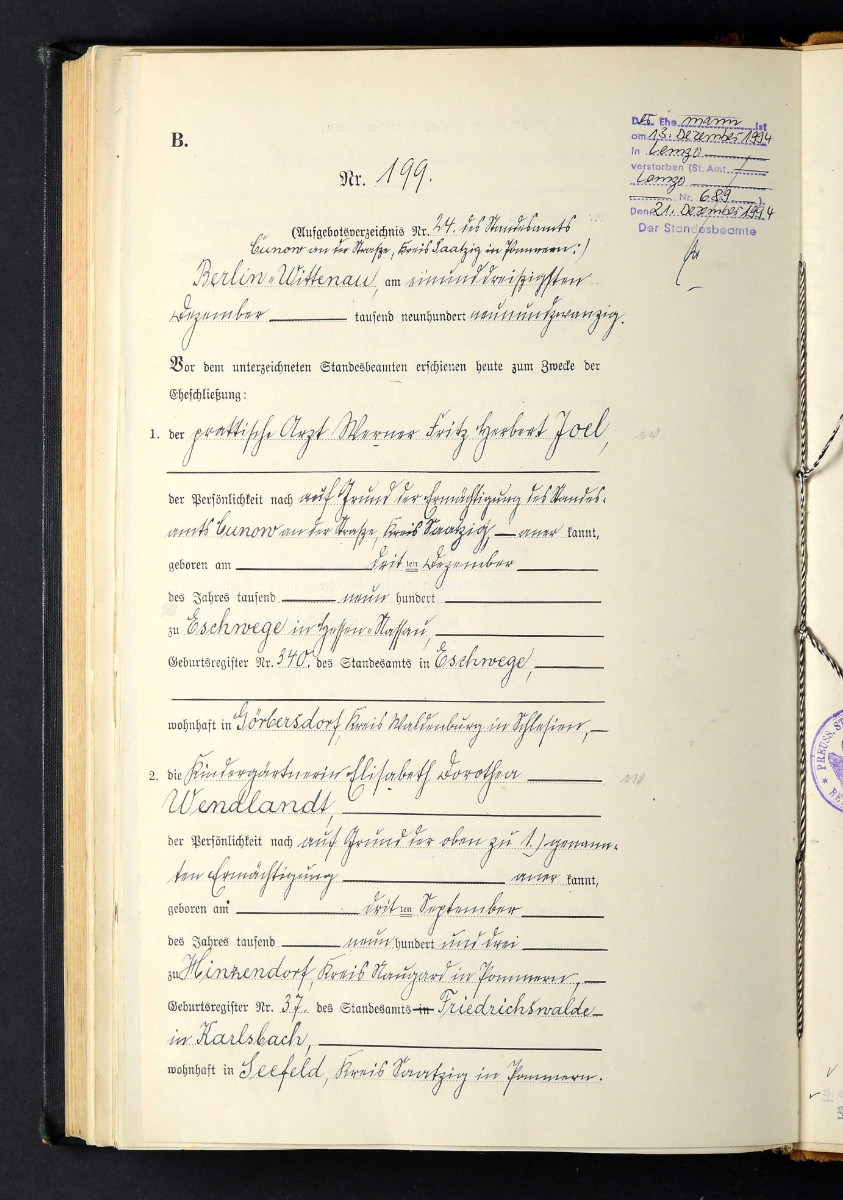 B.
Nr. 199.
(Aufgebotsverzeichnis Nr. 24. des Standesamts
Cunow an der Straße, Kreis Saatzig in Pommern.)
Berlin-Wittenau, am einunddreißigsten
Dezember tausend neunhundert neunundzwanzig.
Vor dem unterzeichneten Standesbeamten erschienen heute zum Zwecke der
Eheschließung:
1. der praktische Arzt Werner Fritz Herbert Joel,
der Persönlichkeit nach auf Grund der Ermächtigung des Standes-
amts Cunow an der Straße, Kreis Saatzig, aner kannt,
geboren am drit ten Dezember
des Jahres tausend neun hundert
zu Eschwege in Hessen-Nassau,
Geburtsregister Nr. 340. des Standesamts in Eschwege,
wohnhaft in Görbersdorf, Kreis Waldenburg in Schlesien,
2. die Kindergärtnerin Elisabeth Dorothea
Wendlandt,
der Persönlichkeit nach auf Grund der oben zu 1.) genann-
ten Ermächtigung aner kannt,
geboren am drit ten September
des Jahres tausend neun hundert und drei
zu Hinzendorf, Kreis Naugard in Pommern,
Geburtsregister Nr. 37. des Standesamts in Friedrichswalde
in Karlsbach,
wohnhaft in Seefeld, Kreis Saatzig in Pommern.
Der Ehe mann ist
am 13. Dezember 1994
in Lemgo
verstorben (St. Amt
Lemgo
Nr. 689).
Den 21. Dezember 1994
Der Standesbeamte
PREUSS. ST